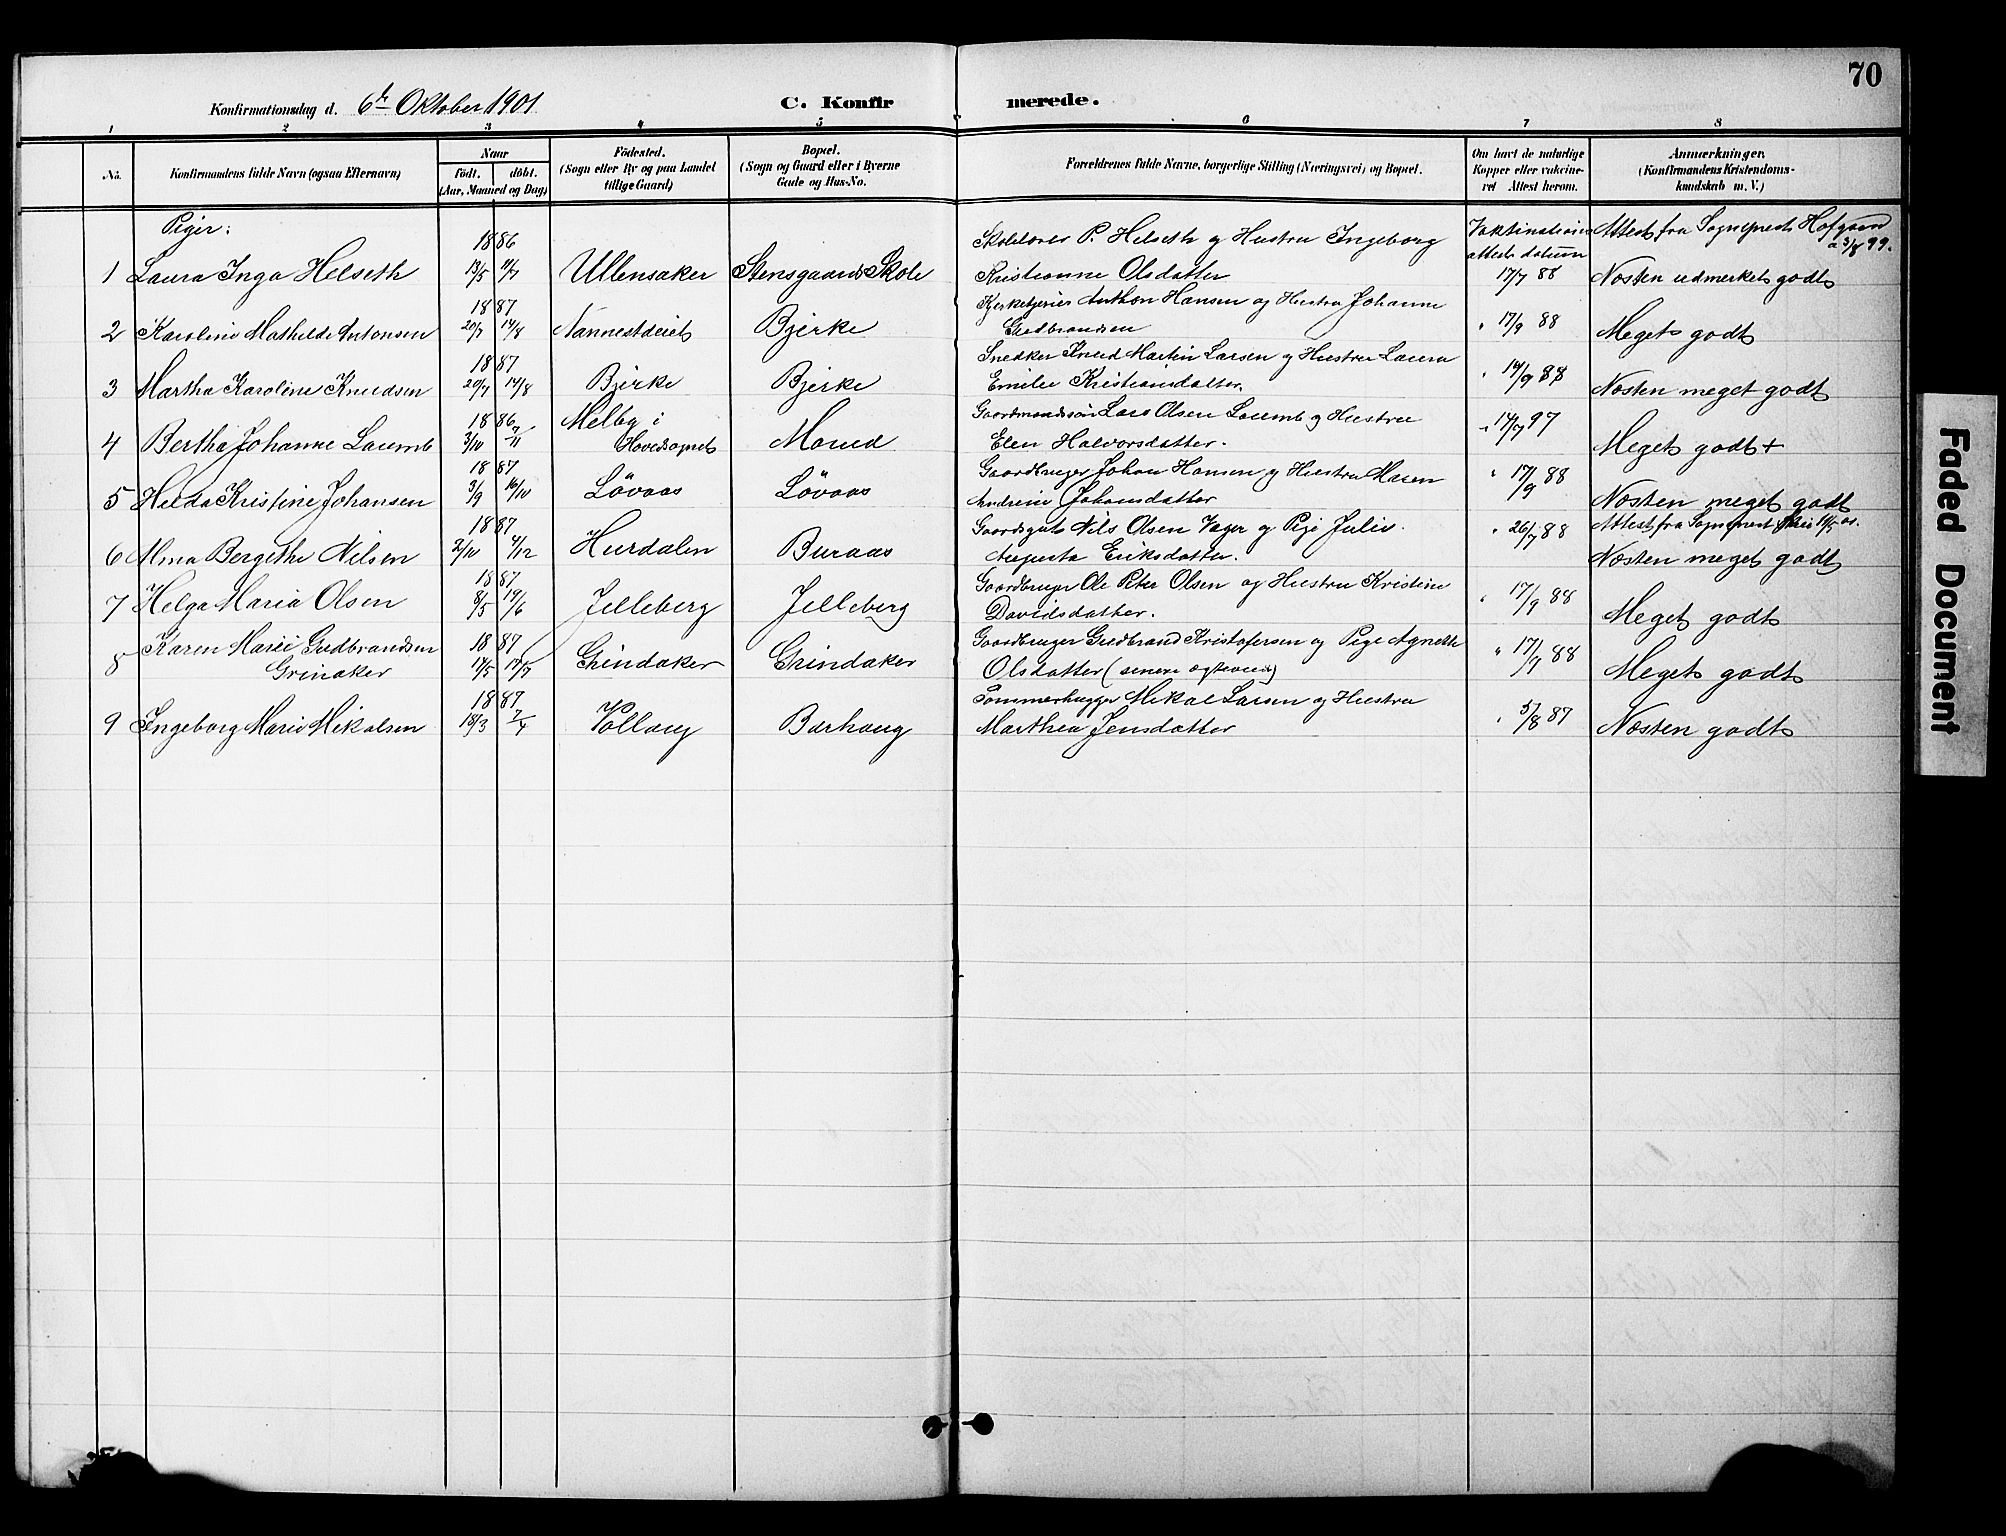 70
Konfirmationsdag d. 6te Oktober 1901
C. Konfirmerede.
1 2 3 4 5 6 7 8
No.
Konfirmandens fulde Navn (ogsaa Efternavn)
Naar
født. døbt.
(Aar, Maaned og Dag)
Fødested.
(Sogn eller By og paa Landet
tillige Gaard)
Bopæl.
(Sogn og Gaard eller i Byerne
Gade og Hus-No.
Forældrenes fulde Navne, borgerlige Stilling (Næringsvei) og Bopæl.
Om havt de naturlige
Kopper eller vakcine-
ret Attest herom.
Anmærkninger.
(Konfirmandens Kristendoms-
kundskab m. V.)
Piger:
1 Laura Inga Helseth 1886 13/5 4/7 Ullensaker Stensgaards Skole
Skolelærer P. Helseth og Hustru Ingeborg
Kristianne Olsdatter
Vaktinations
attests datum
17/7 88
Attest fra Sogneprest Hofgaard
a 3/8 99.
Næsten udmerket godt
2 Karoline Mathilde Antonsen 1887 20/7 14/8 Nannesteiet Bjerke
Kirketjener Anthon Hansen og Hustru Johanne
Gudbrandsen
" 17/9 88 Meget godt
3 Martha Karoline Knudsen 1887 20/7 14/8 Bjerke Bjerke
Snedker Knud Martin Larsen og Hustru Laura
Emilie Kristiansdatter.
" 14/9 88 Næsten meget godt
4 Bertha Johanne Laumb 1886 3/10 7/11 Melby i
Hovedsognet Moued
Gaardmandssøn Lars Olsen Laumb og Hustru
Elen Halvorsdatter.
" 17/7 97 Meget godt +
5 Hilda Kristine Johansen 1887 3/9 16/10 Løvaas Løvaas
Gaardbruger Johan Hansen og Hustru Maren
Andrine Johansdatter
" 17/9 88 Næsten meget godt
6 Alma Bergithe Nilsen 1887 2/10 4/12 Hurdalen Buraas
Gaardsgut Nils Olsen Vager og Pige Julie
Augusta Eriksdatter.
" 26/7 88 Attest fra Sogneprest
Næsten meget godt
7 Helga Maria Olsen 1887 8/5 19/6 Jelleberg Jelleberg
Gaardbruger Ole Peter Olsen og Hustru Kristine
Davidsdatter.
" 17/9 88 Meget godt
8 Karen Marie Gudbrandsen
Grinaker 1887 17/5 17/7 Grindaker Grindaker
Gaardbruger Gudbrand Kristofersen og Pige Agnethe
Olsdatter (senere ægteviede)
" 17/9 88 Meget godt
9 Ingeborg Marie Mikalsen 1887 18/3 7/4 Vollaug Barhaug
Tømmerhugger Mikal Larsen og Hustru
Marthea Jensdatter
" 5/8 87 Næsten godt
Faded Document